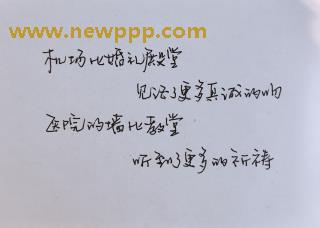 www.newppp.com
机场比婚礼殿堂
见证了更多真诚的吻
医院的墙比教堂
听到了更多的祈祷